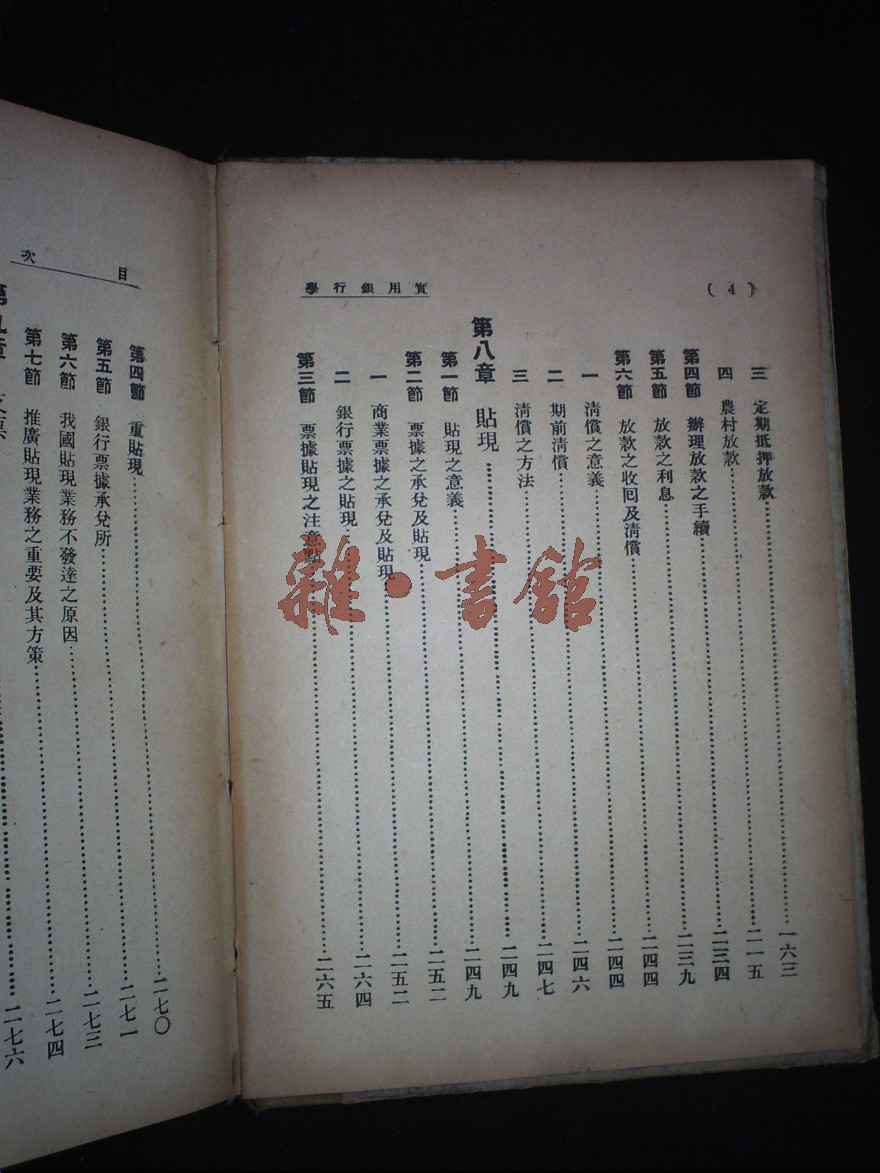 (4)
實用銀行學
三 定期抵押放款……一六三
四 農村放款……二一五
第四節 辦理放款之手續……二三四
第五節 放款之利息……二三九
第六節 放款之收回及清償……二四四
一 清償之意義……二四四
二 期前清償……二四六
三 清償之方法……二四七
第八章 貼現……二四九
第一節 貼現之意義……二四九
第二節 票據之承兌及貼現……二五二
一 商業票據之承兌及貼現……二五二
二 銀行票據之貼現……二六四
第三節 票據貼現之注意點……二六五
雜·書館
目次
第四節 重貼現……二七〇
第五節 銀行票據承兌所……二七一
第六節 我國貼現業務不發達之原因……二七三
第七節 推廣貼現業務之重要及其方策……二七四
第九章……二七六